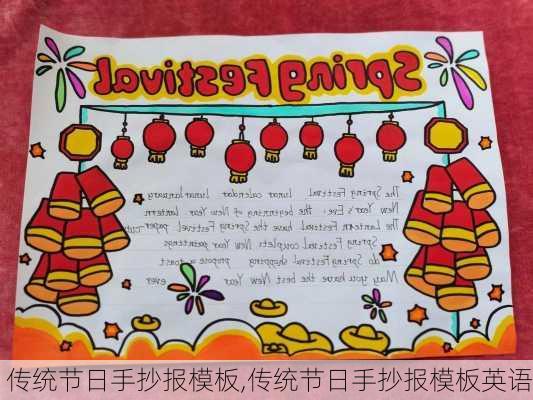 Spring Festival
The Spring Festival lunar calendar lunar January
New Year's Eve: the beginning of New Year lantern
The Lantern Festival have the Spring Festival paper-cut
Spring Festival complets New Year paintings
do Spring Festival shopping propose a toast
May you have the best New Year ever
传统节日手抄报模板,传统节日手抄报模板英语